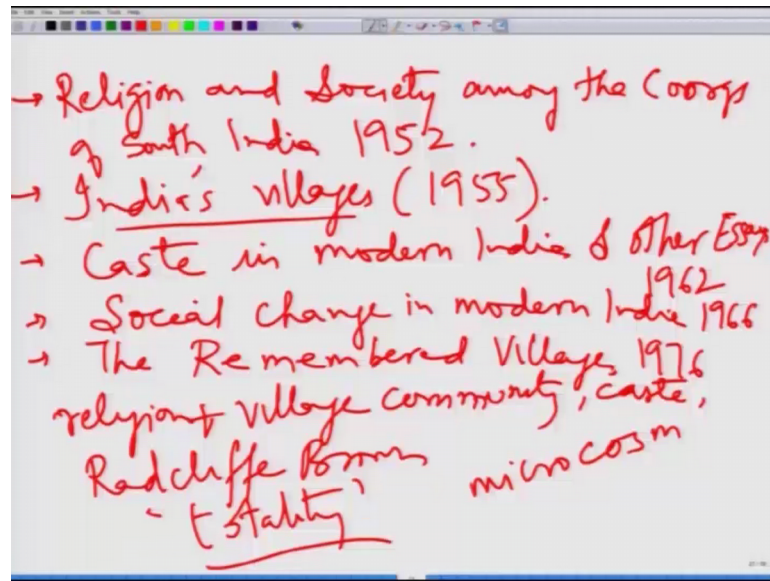 → Religion and Society among the Coorgs
of South India 1952.
→ India's villages (1955).
→ Caste in modern India & other Essays
1962
→ Social change in modern India 1966
→ The Remembered Village 1976
religion + village community, caste,
Radcliffe Brown microcosm
"totality"